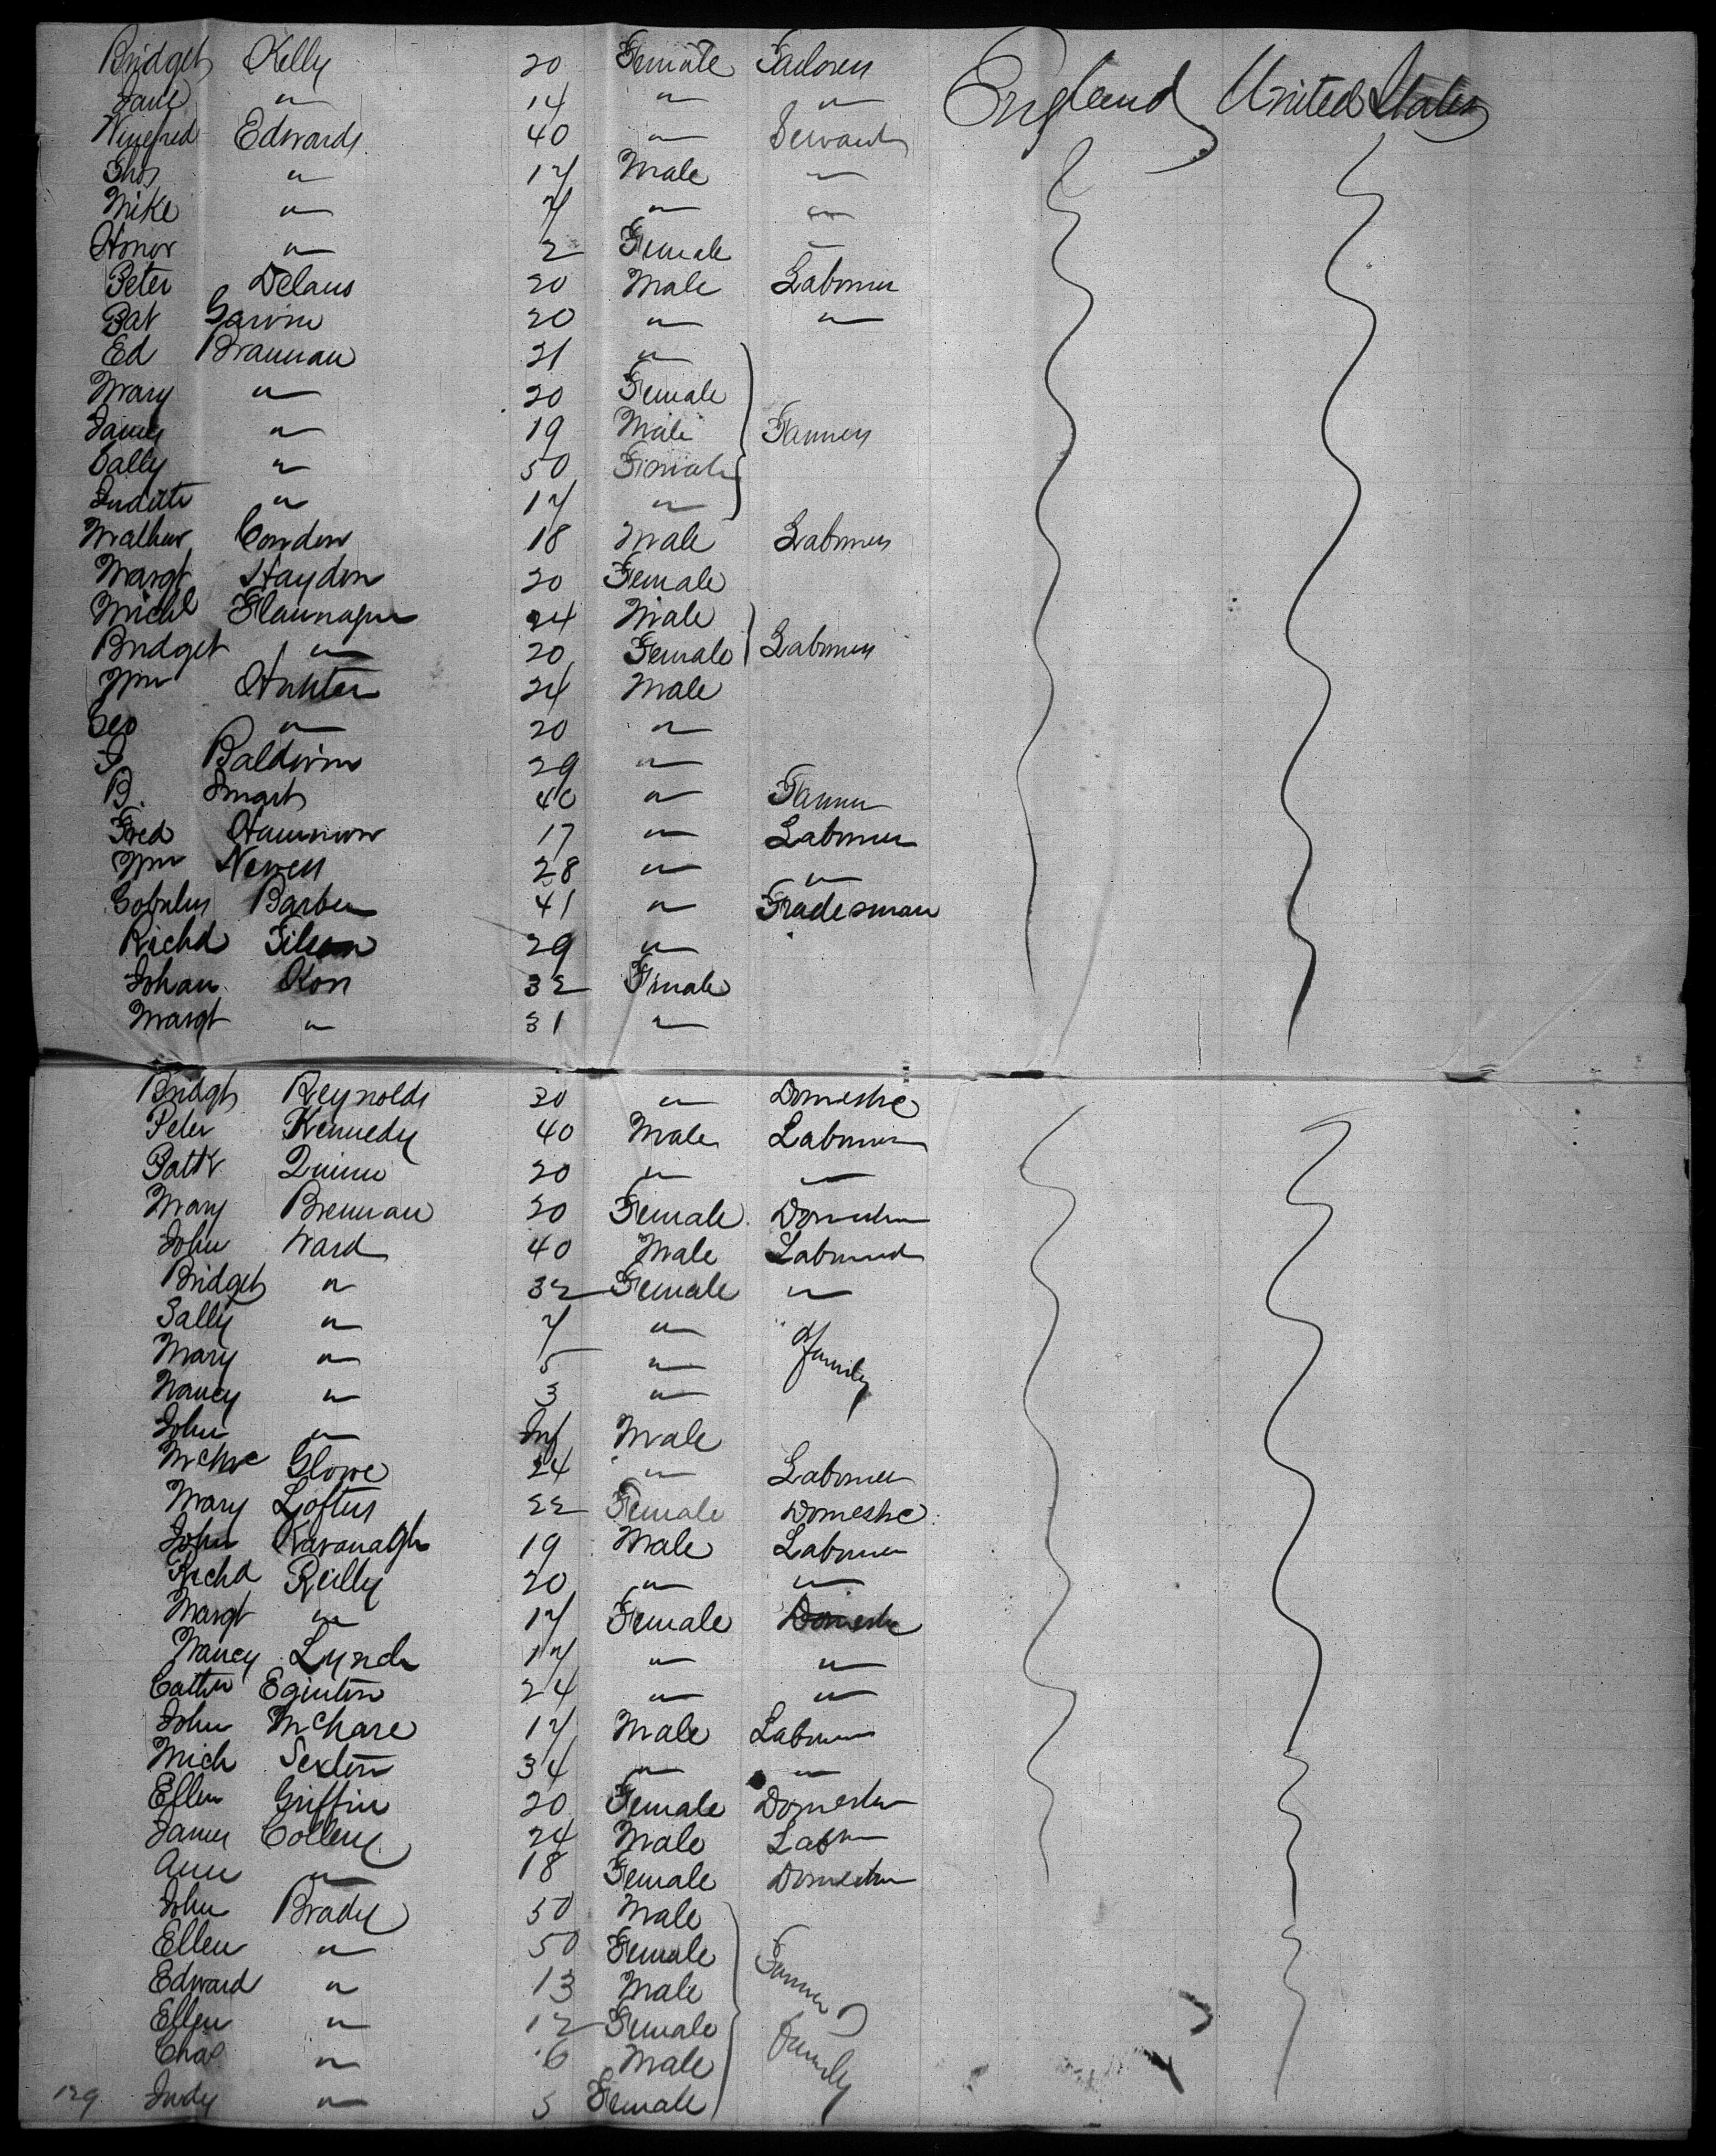 Bridget Kelly 20 Female Tailoress England United States
Jane " 14 " "
Winefred Edwards 40 " Servant
Thos " 17 Male "
Mike " 7 " "
Honor " 2 Female "
Peter Delaus 20 Male Labourer
Pat Garvin 20 " "
Ed Brannan 21 "
Mary " 20 Female
James " 19 Male Farmers
Sally " 50 Female
Judith " 17 "
Mathew Condon 18 Male Labourer
Margt Haydon 20 Female
Michl Flannagan 24 Male
Bridget " 20 Female Labourers
Wm Hunter 24 Male
Geo " 20 "
Baldwin 29 "
B. Smart 40 " Farmer
Fred 17 " Labourer
Wm Newell 28 " "
Barber 41 " Tradesman
Richd 29 "
Johan 32 Female
Margt " 31 "
Bridgt Reynolds 20 " Domestic
Peter Kennedy 40 Male Labourer
Patk Quinn 20 " "
Mary Brennan 20 Female Domestic
John Ward 40 Male Labourer
Bridget " 32 Female "
Sally " 7 " &
Mary " 5 " family
Nancy " 3 "
John " Inf Male
Glove 24 " Labourer
Mary Loftus 22 Female Domestic
John Kavanagh 19 Male Labourer
Richd Reilly 20 " "
Margt " 17 Female Domestic
Nancy Lynch 17 " "
Cathn Eginton 24 " "
John McHare 17 Male Labourer
Mich Sexton 34 " "
Ellen Griffin 20 Female Domestic
James Collery 24 Male Labr
Ann " 18 Female Domestic
John Brady 50 Male
Ellen " 50 Female Farmer
Edward " 13 Male
Ellen " 12 Female &
Chas " 6 Male family
129 Judy " 3 Female